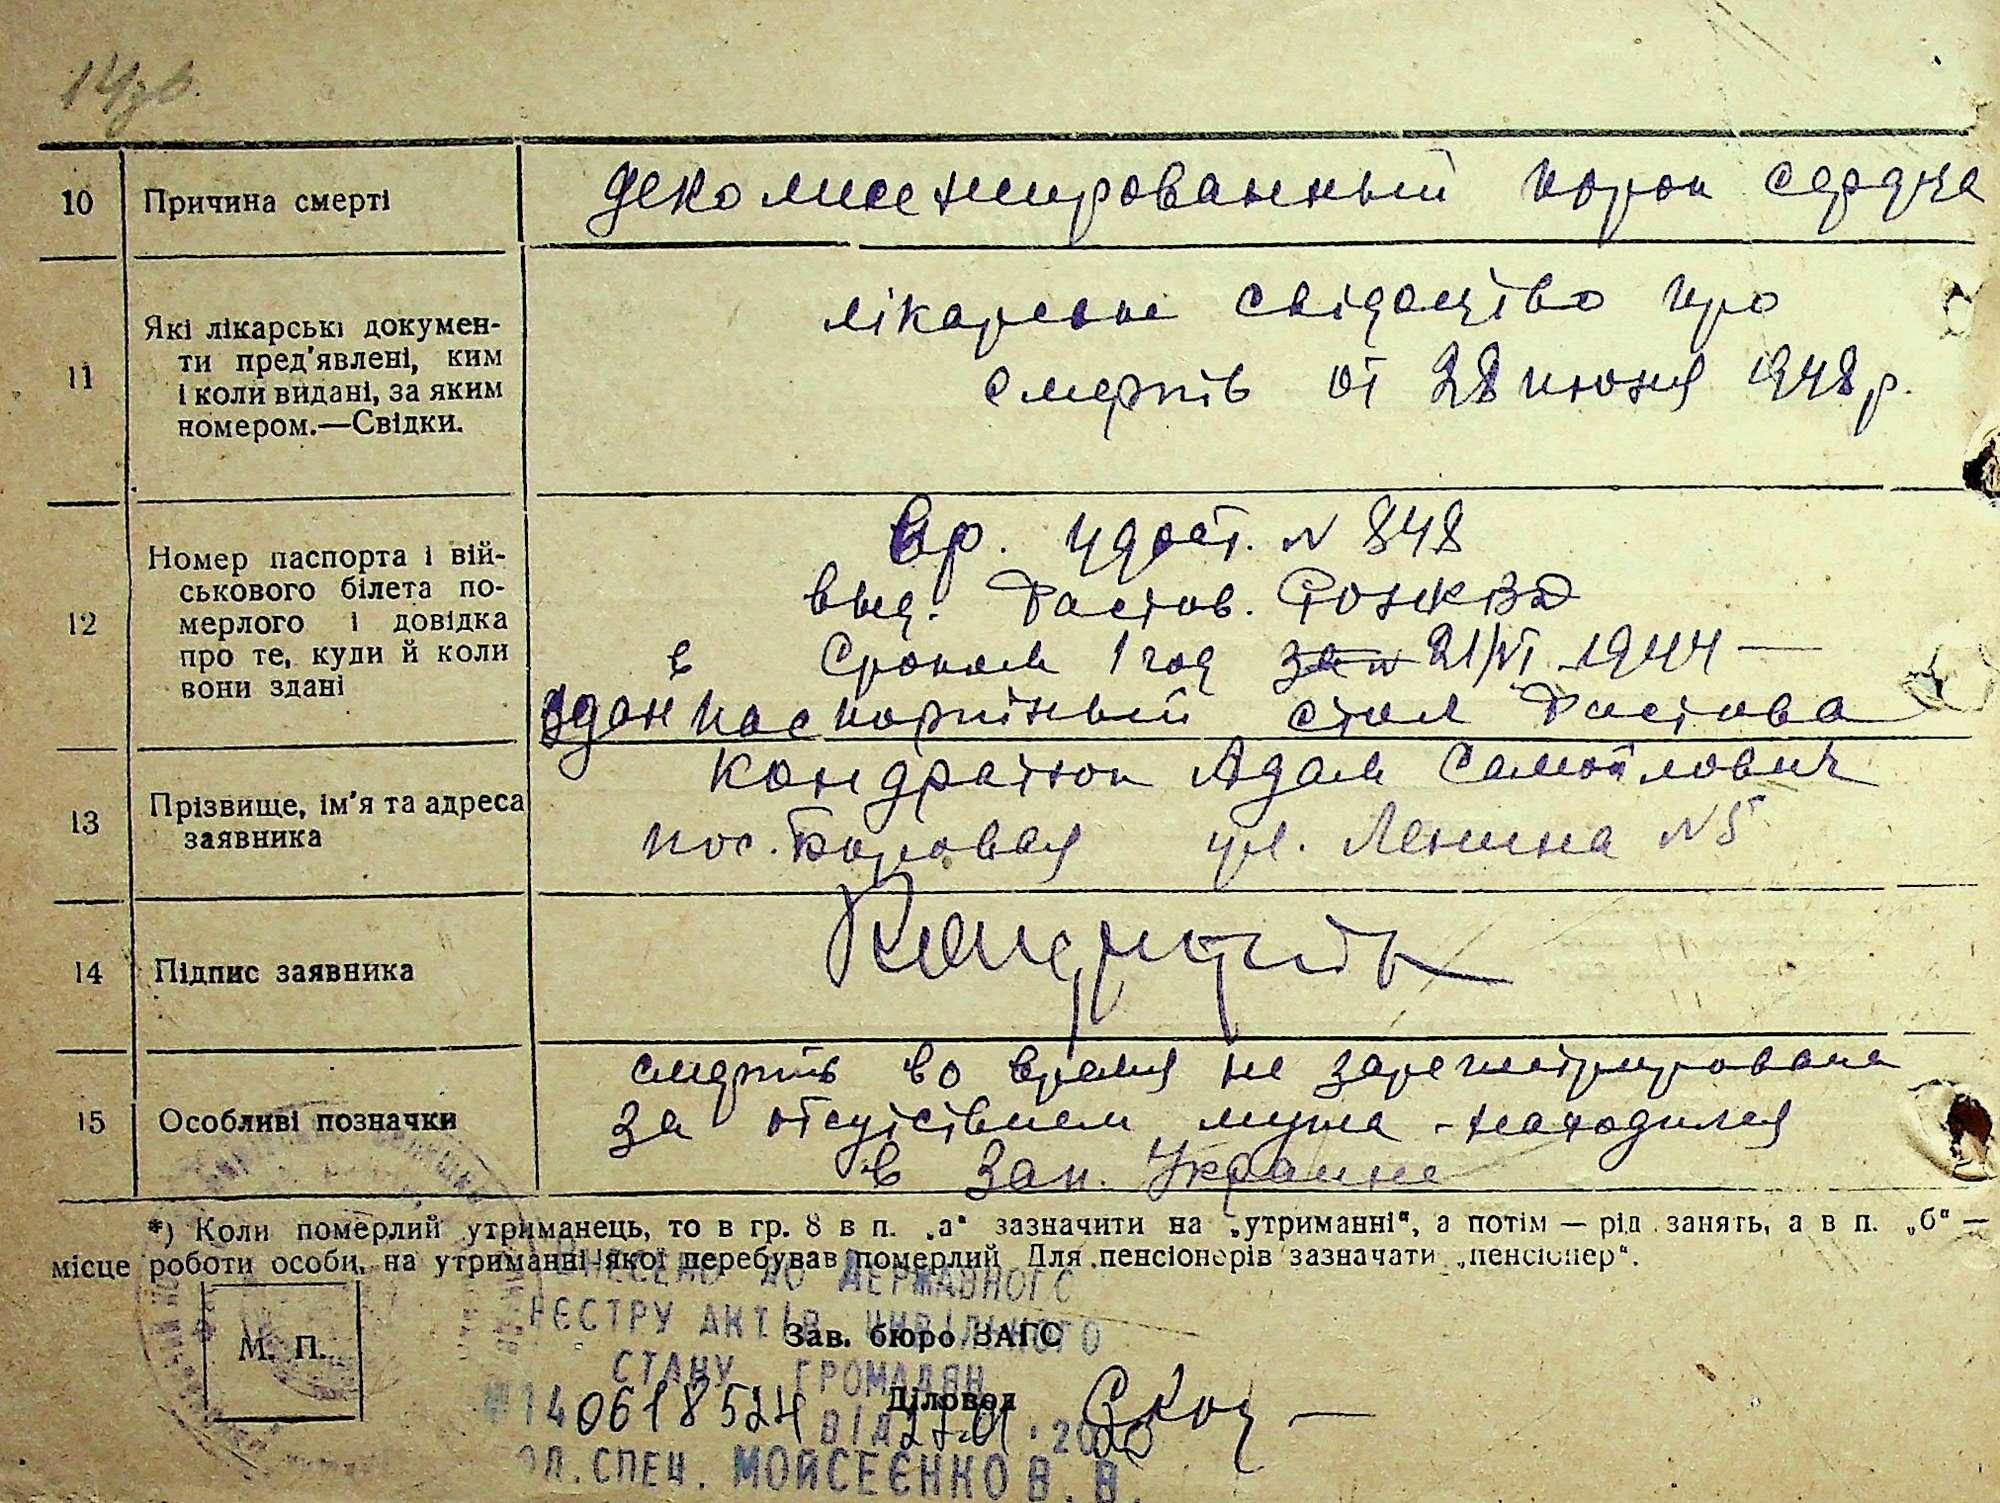 14зв.
10 Причина смерті декомпенсированный порок сердца
11 Які лікарські докумен-
ти пред'явлені, ким
і коли видані, за яким
номером.—Свідки.
лікарське свідоцтво про
смерть от 28 июня 1948 р.
12 Номер паспорта і вій-
ськового білета по-
мерлого і довідка
про те, куди й коли
вони здані
Вр. удост. N 848
выд. Фастов. РОНКВД
в Сроком 1 год 21/VI 1944 —
здан паспортный стол Фастова
13 Прізвище, ім'я та адреса
заявника
Кондратюк Адам Самойлович
пос. Боровая ул. Ленина N 5
14 Підпис заявника
15 Особливі позначки
смерть во время не зарегистрирована
за отсутствием мужа - находился
в Зап. Украине
*) Коли померлий утриманець, то в гр. 8 в п. „а“ зазначити на „утриманні“, а потім — рід занять, а в п. „б“ —
місце роботи особи, на утриманні якої перебував померлий Для пенсіонерів зазначати „пенсіонер“.
ВНЕСЕНО ДО ДЕРЖАВНОГО
РЕЄСТРУ АКТІВ ЦИВІЛЬНОГО
М. П. Зав. бюро ЗАГС
СТАНУ ГРОМАДЯН
Діловод
№ 140618524
ВІД
ГОЛ. СПЕЦ. МОЙСЕЄНКО В. В.